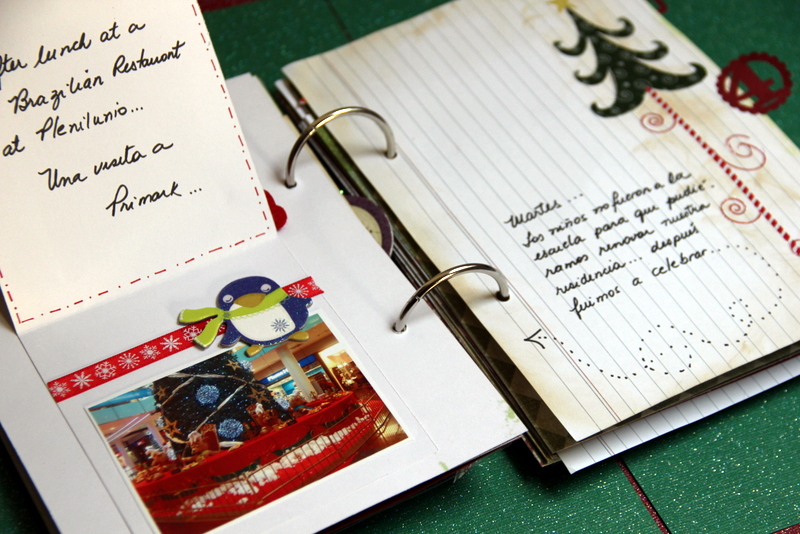 after lunch at a
Brazilian Restaurant
at Plenilunio...
Una visita a
Primark...
Martes...
Los niños no fueron a la
escuela para que pudié-
ramos renovar nuestra
residencia... después
fuimos a celebrar